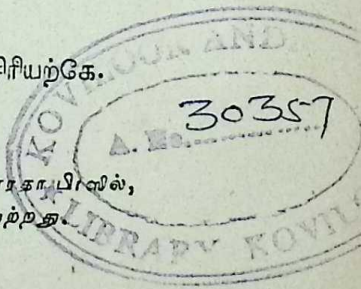 ரியற்கே.
KOVILOOR AND
A. No. 30357
ரதா பிரஸில்,
ற்றது.
LIBRARY KOVIL